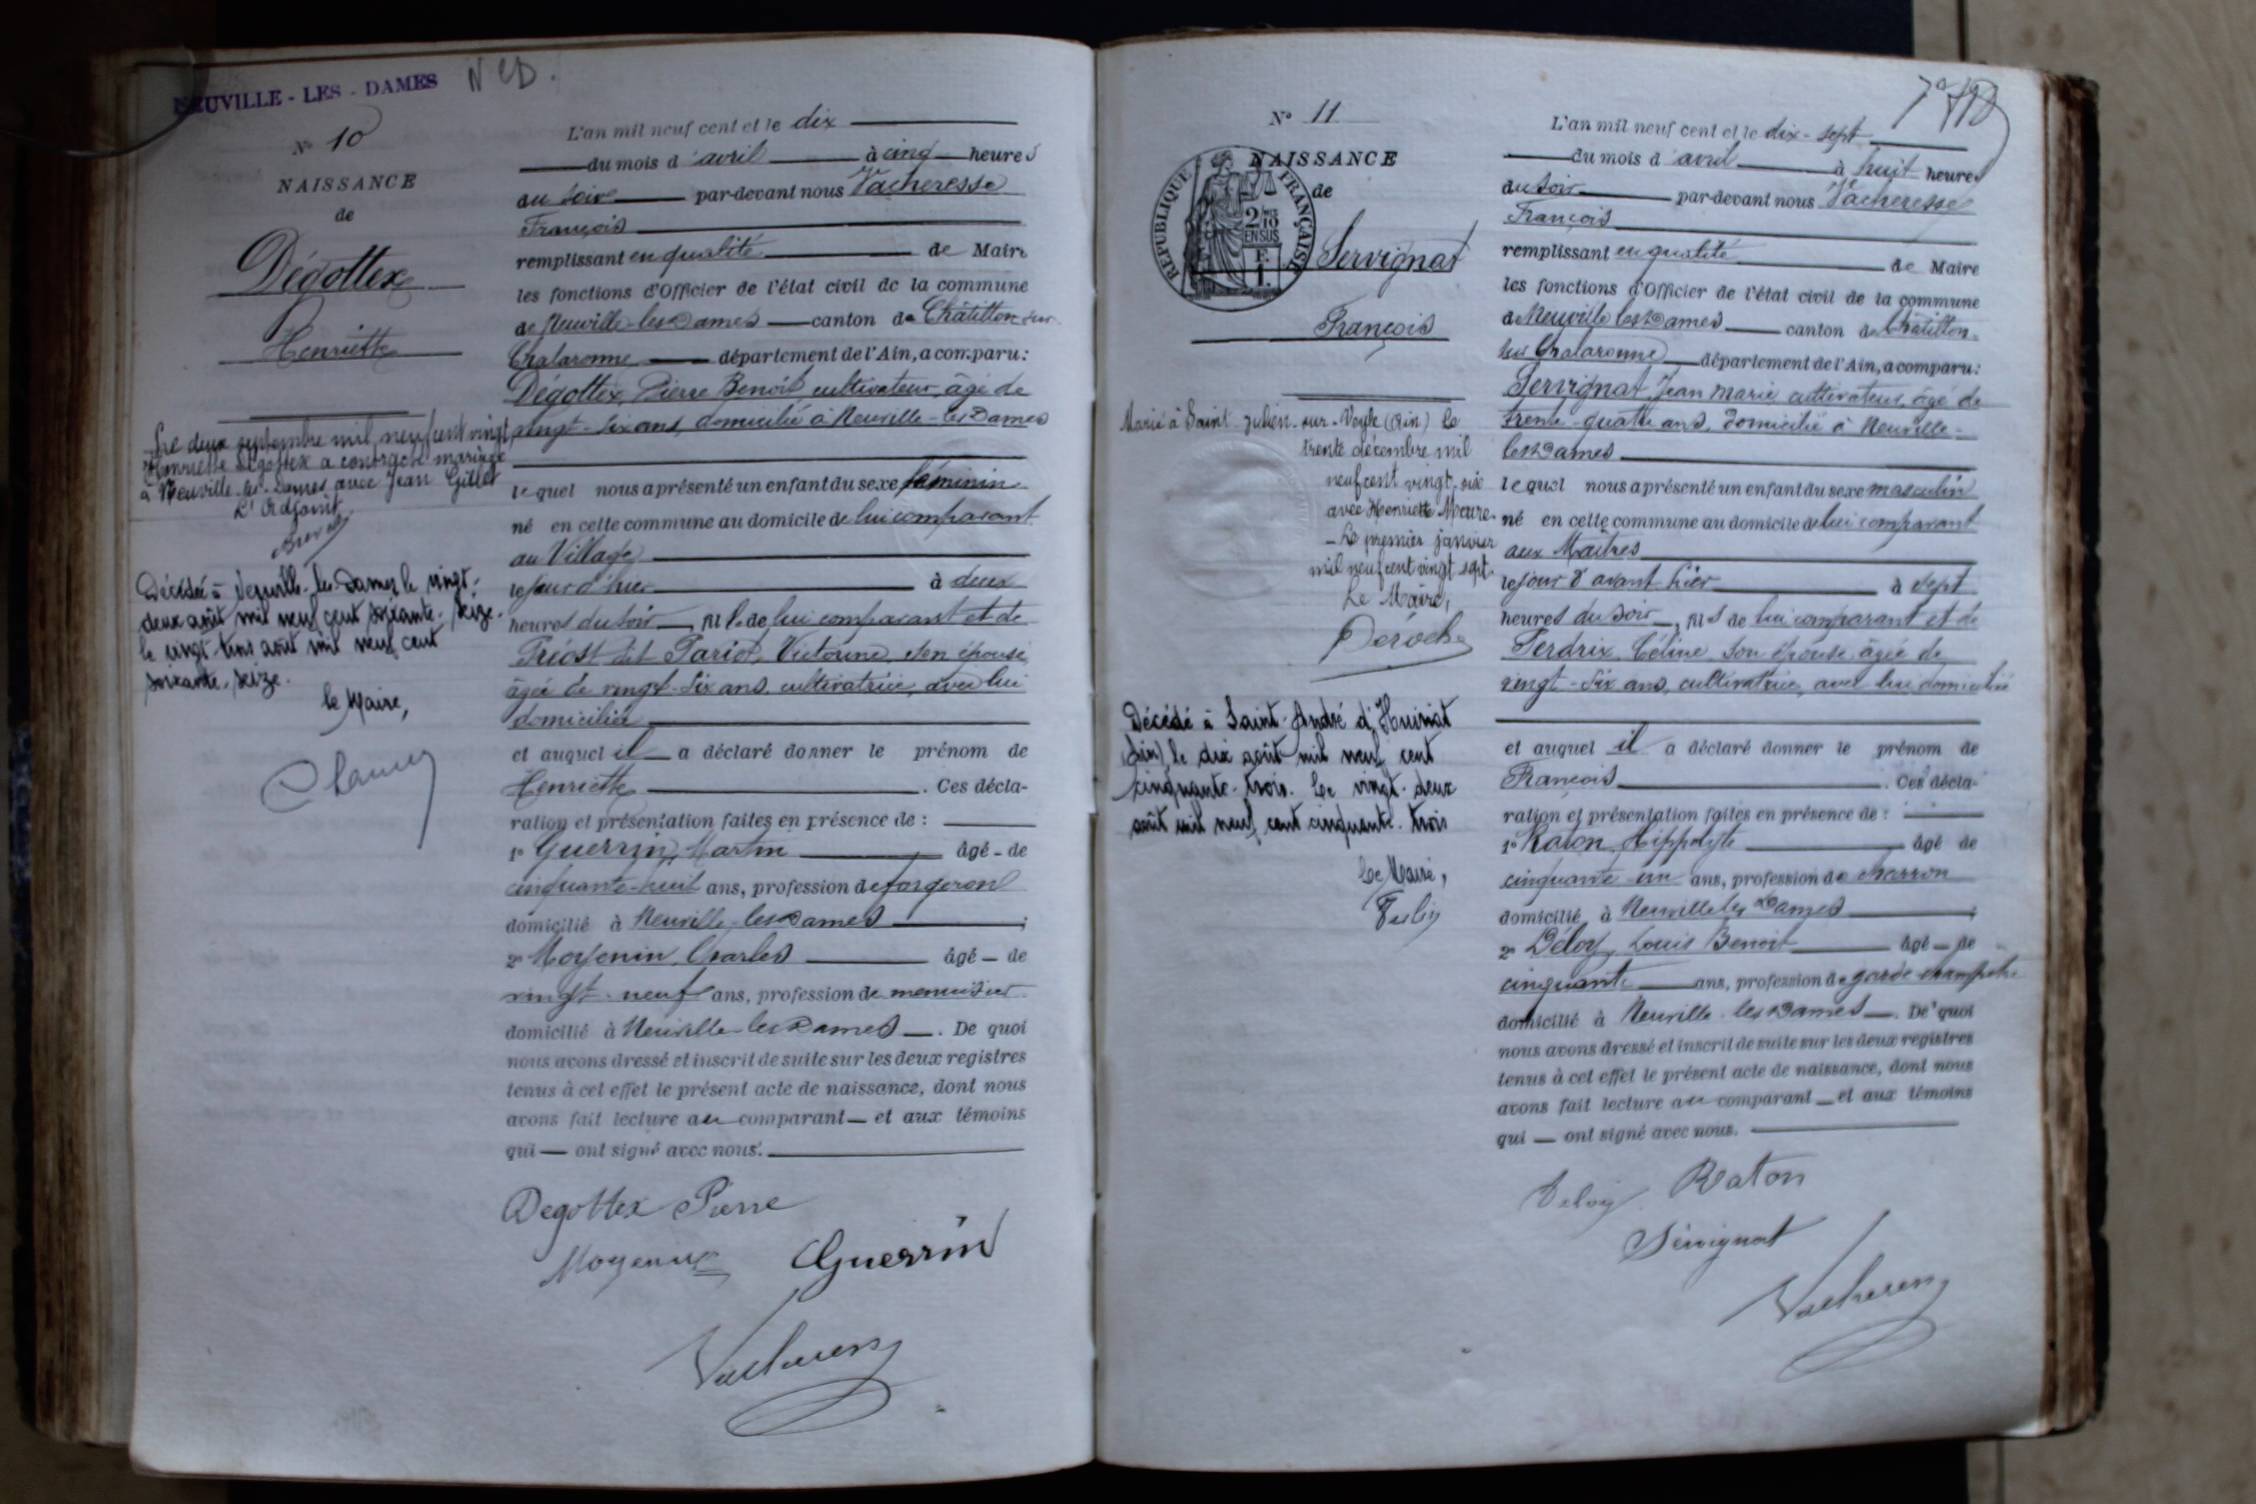 NEUVILLE - LES - DAMES
N° 10
NAISSANCE
de
Dégottex
Henriette
Le deux septembre mil neuf cent vingt
Henriette Dégottex a contracté mariage
à Neuville-les-Dames avec Jean Gillet
L'Adjoint
Décédée à Neuville-les-Dames le vingt-
deux août mil neuf cent soixante-seize.
le vingt-trois août mil neuf cent
soixante-seize.
le Maire,
L'an mil neuf cent et le dix
du mois d'avril à cinq heures
du soir par-devant nous Vacheresse
François
remplissant en qualité de Maire
les fonctions d'Officier de l'état civil de la commune
de Neuville-les-Dames canton de Châtillon-sur-
Chalaronne département de l'Ain, a comparu:
Dégottex, Pierre Benoît, cultivateur, âgé de
vingt-six ans, domicilié à Neuville-les-Dames
lequel nous a présenté un enfant du sexe féminin
né en cette commune au domicile de lui comparant
au Village
le jour d'hier à deux
heures du soir, fille de lui comparant et de
dit Pariot, Victorine, son épouse,
âgée de vingt-six ans, cultivatrice, avec lui
domiciliée
et auquel il a déclaré donner le prénom de
Henriette. Ces décla-
ration et présentation faites en présence de :
1° Guerrin, Martin âgé de
cinquante-huit ans, profession de forgeron
domicilié à Neuville-les-Dames ;
2° Moyenin, Charles âgé de
vingt-neuf ans, profession de menuisier
domicilié à Neuville-les-Dames. De quoi
nous avons dressé et inscrit de suite sur les deux registres
tenus à cet effet le présent acte de naissance, dont nous
avons fait lecture au comparant et aux témoins
qui ont signé avec nous.
Degottex Pierre
Guerrin
N° 11
NAISSANCE
de
RÉPUBLIQUE FRANÇAISE
2/10
EN SUS
Servignat
François
Marié à Saint-Julien-sur-Veyle (Ain) le
trente décembre mil
neuf cent vingt-six
avec Henriette
Le premier janvier
mil neuf cent vingt sept.
Le Maire,
Décédé à Saint-André d'Huiriat
(Ain), le dix août mil neuf cent
cinquante-trois. Le vingt-deux
août mil neuf cent cinquante-trois
Le Maire,
L'an mil neuf cent et le dix-sept
du mois d'avril à huit heures
du soir par-devant nous Vacheresse
François
remplissant en qualité de Maire
les fonctions d'Officier de l'état civil de la commune
de Neuville les Dames canton de Châtillon-
sur Chalaronne département de l'Ain, a comparu:
Servignat, Jean Marie, cultivateur, âgé de
trente-quatre ans, domicilié à Neuville-
les-Dames
lequel nous a présenté un enfant du sexe masculin
né en cette commune au domicile de lui comparant
aux Maîtres
le jour d'avant hier à sept
heures du soir, fils de lui comparant et de
Perdrix, Céline, son épouse, âgée de
vingt-six ans, cultivatrice, avec lui domiciliée
et auquel il a déclaré donner le prénom de
François. Ces décla-
ration et présentation faites en présence de :
1° Raton, Hippolyte âgé de
cinquante un ans, profession de charron
domicilié à Neuville les Dames ;
2° Déloy, Louis Benoît âgé de
cinquante ans, profession de garde champêtre
domicilié à Neuville-les-Dames. De quoi
nous avons dressé et inscrit de suite sur les deux registres
tenus à cet effet le présent acte de naissance, dont nous
avons fait lecture au comparant et aux témoins
qui ont signé avec nous.
Deloy Raton
Servignat